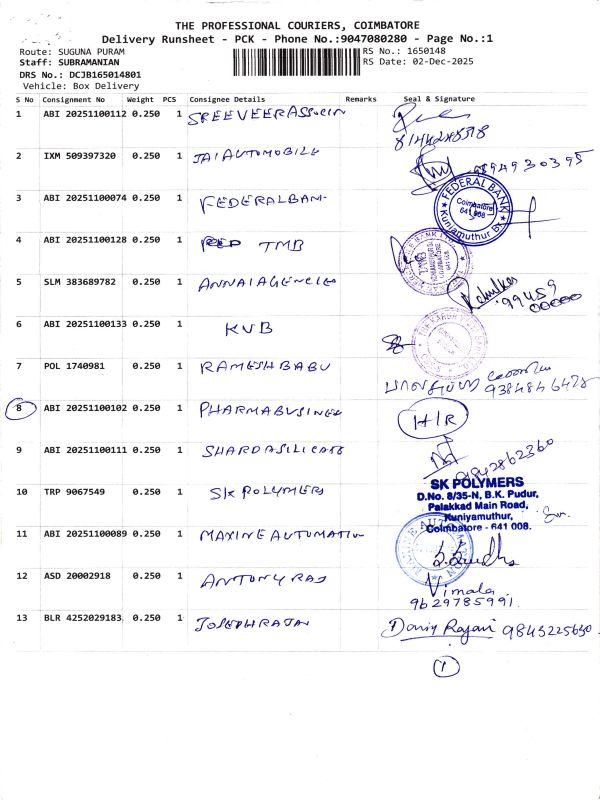 THE PROFESSIONAL COURIERS, COIMBATORE
Delivery Runsheet - PCK - Phone No.:9047080280 - Page No.:1
Route: SUGUNA PURAM RS No.: 1650148
Staff: SUBRAMANIAN RS Date: 02-Dec-2025
DRS No.: DCJB165014801
Vehicle: Box Delivery
S No Consignment No Weight PCS Consignee Details Remarks Seal & Signature
1 ABI 20251100112 0.250 1
2 IXM 509397320 0.250 1 JAI AUTOMOBILE 9894930395
3 ABI 20251100074 0.250 1 FEDERAL BANK FEDERAL BANK Coimbatore 641 008 Kuniyamuthur Br.
4 ABI 20251100128 0.250 1 TMB
5 SLM 383689782 0.250 1 ANNAI AGENCIES 99459 00000
6 ABI 20251100133 0.250 1 KVB
7 POL 1740981 0.250 1 RAMESH BABU 9384846478
8 ABI 20251100102 0.250 1 PHARMABUSINES H/R
9 ABI 20251100111 0.250 1 SHARDASILICATE 9842862360
10 TRP 9067549 0.250 1 SK POLYMERS
SK POLYMERS
D.No. 8/35-N, B.K. Pudur,
Palakkad Main Road,
Kuniyamuthur,
Coimbatore - 641 008.
11 ABI 20251100089 0.250 1 MAXINE AUTOMATION
12 ASD 20002918 0.250 1 ANTONY RAJ Vimala
9629785991
13 BLR 4252029183 0.250 1 JOSEPH RAJAN 9843225630
1